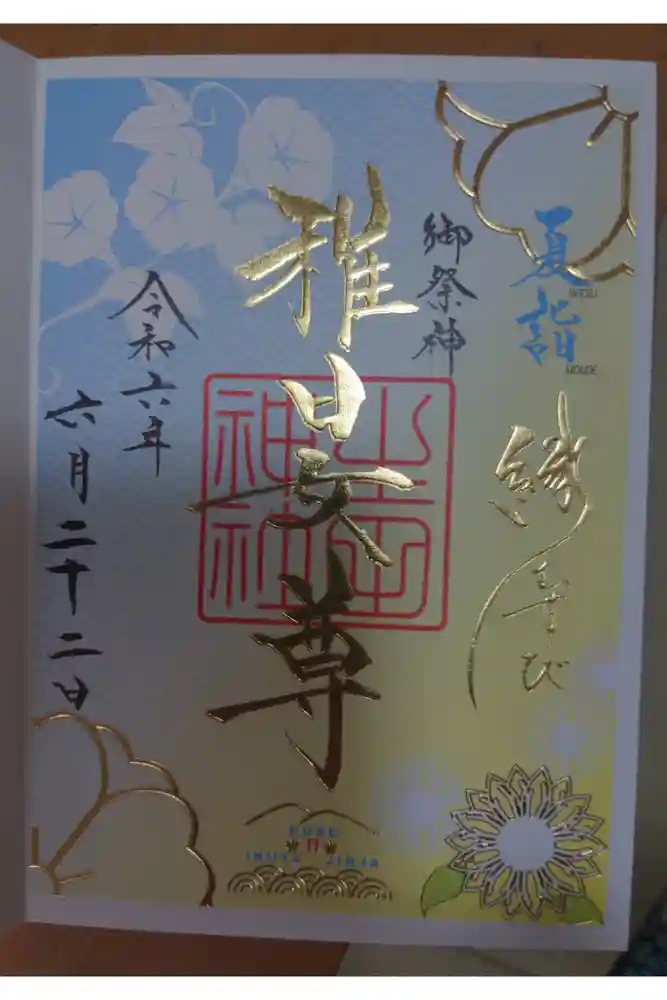 夏詣
NATSU
MOUDE
縁むすび
御祭神
稚日女尊
生田
神社
令和六年
六月二十二日
KOBE
IKUTA JINJA